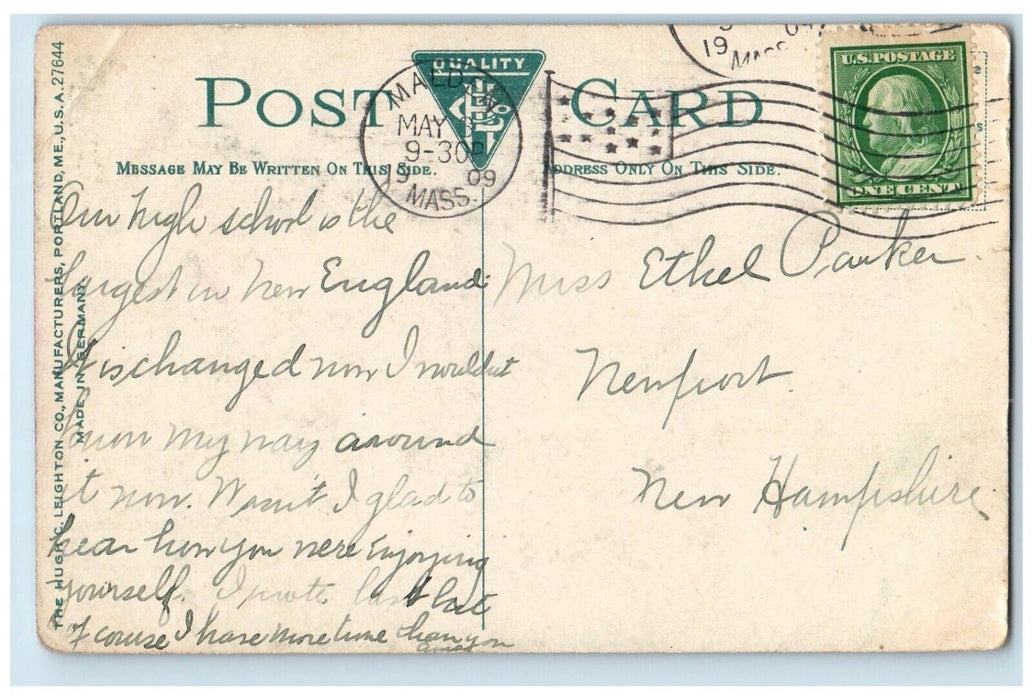 THE HUGH C. LEIGHTON CO., MANUFACTURERS, PORTLAND, ME., U.S.A. 27644
MADE IN GERMANY.
POST CARD
QUALITY
MALDEN
MAY 3
9-30P
09
MASS.
19
MASS
U.S. POSTAGE
ONE CENT
MESSAGE MAY BE WRITTEN ON THIS SIDE.
ADDRESS ONLY ON THIS SIDE.
Our high school is the
largest in New England
It is changed now I wouldnt
know my way around
it now. Wasn't I glad to
hear how you were enjoying
yourself. I wrote last but
of course I have more time than you
Miss Ethel Parker
Newport
New Hampshire